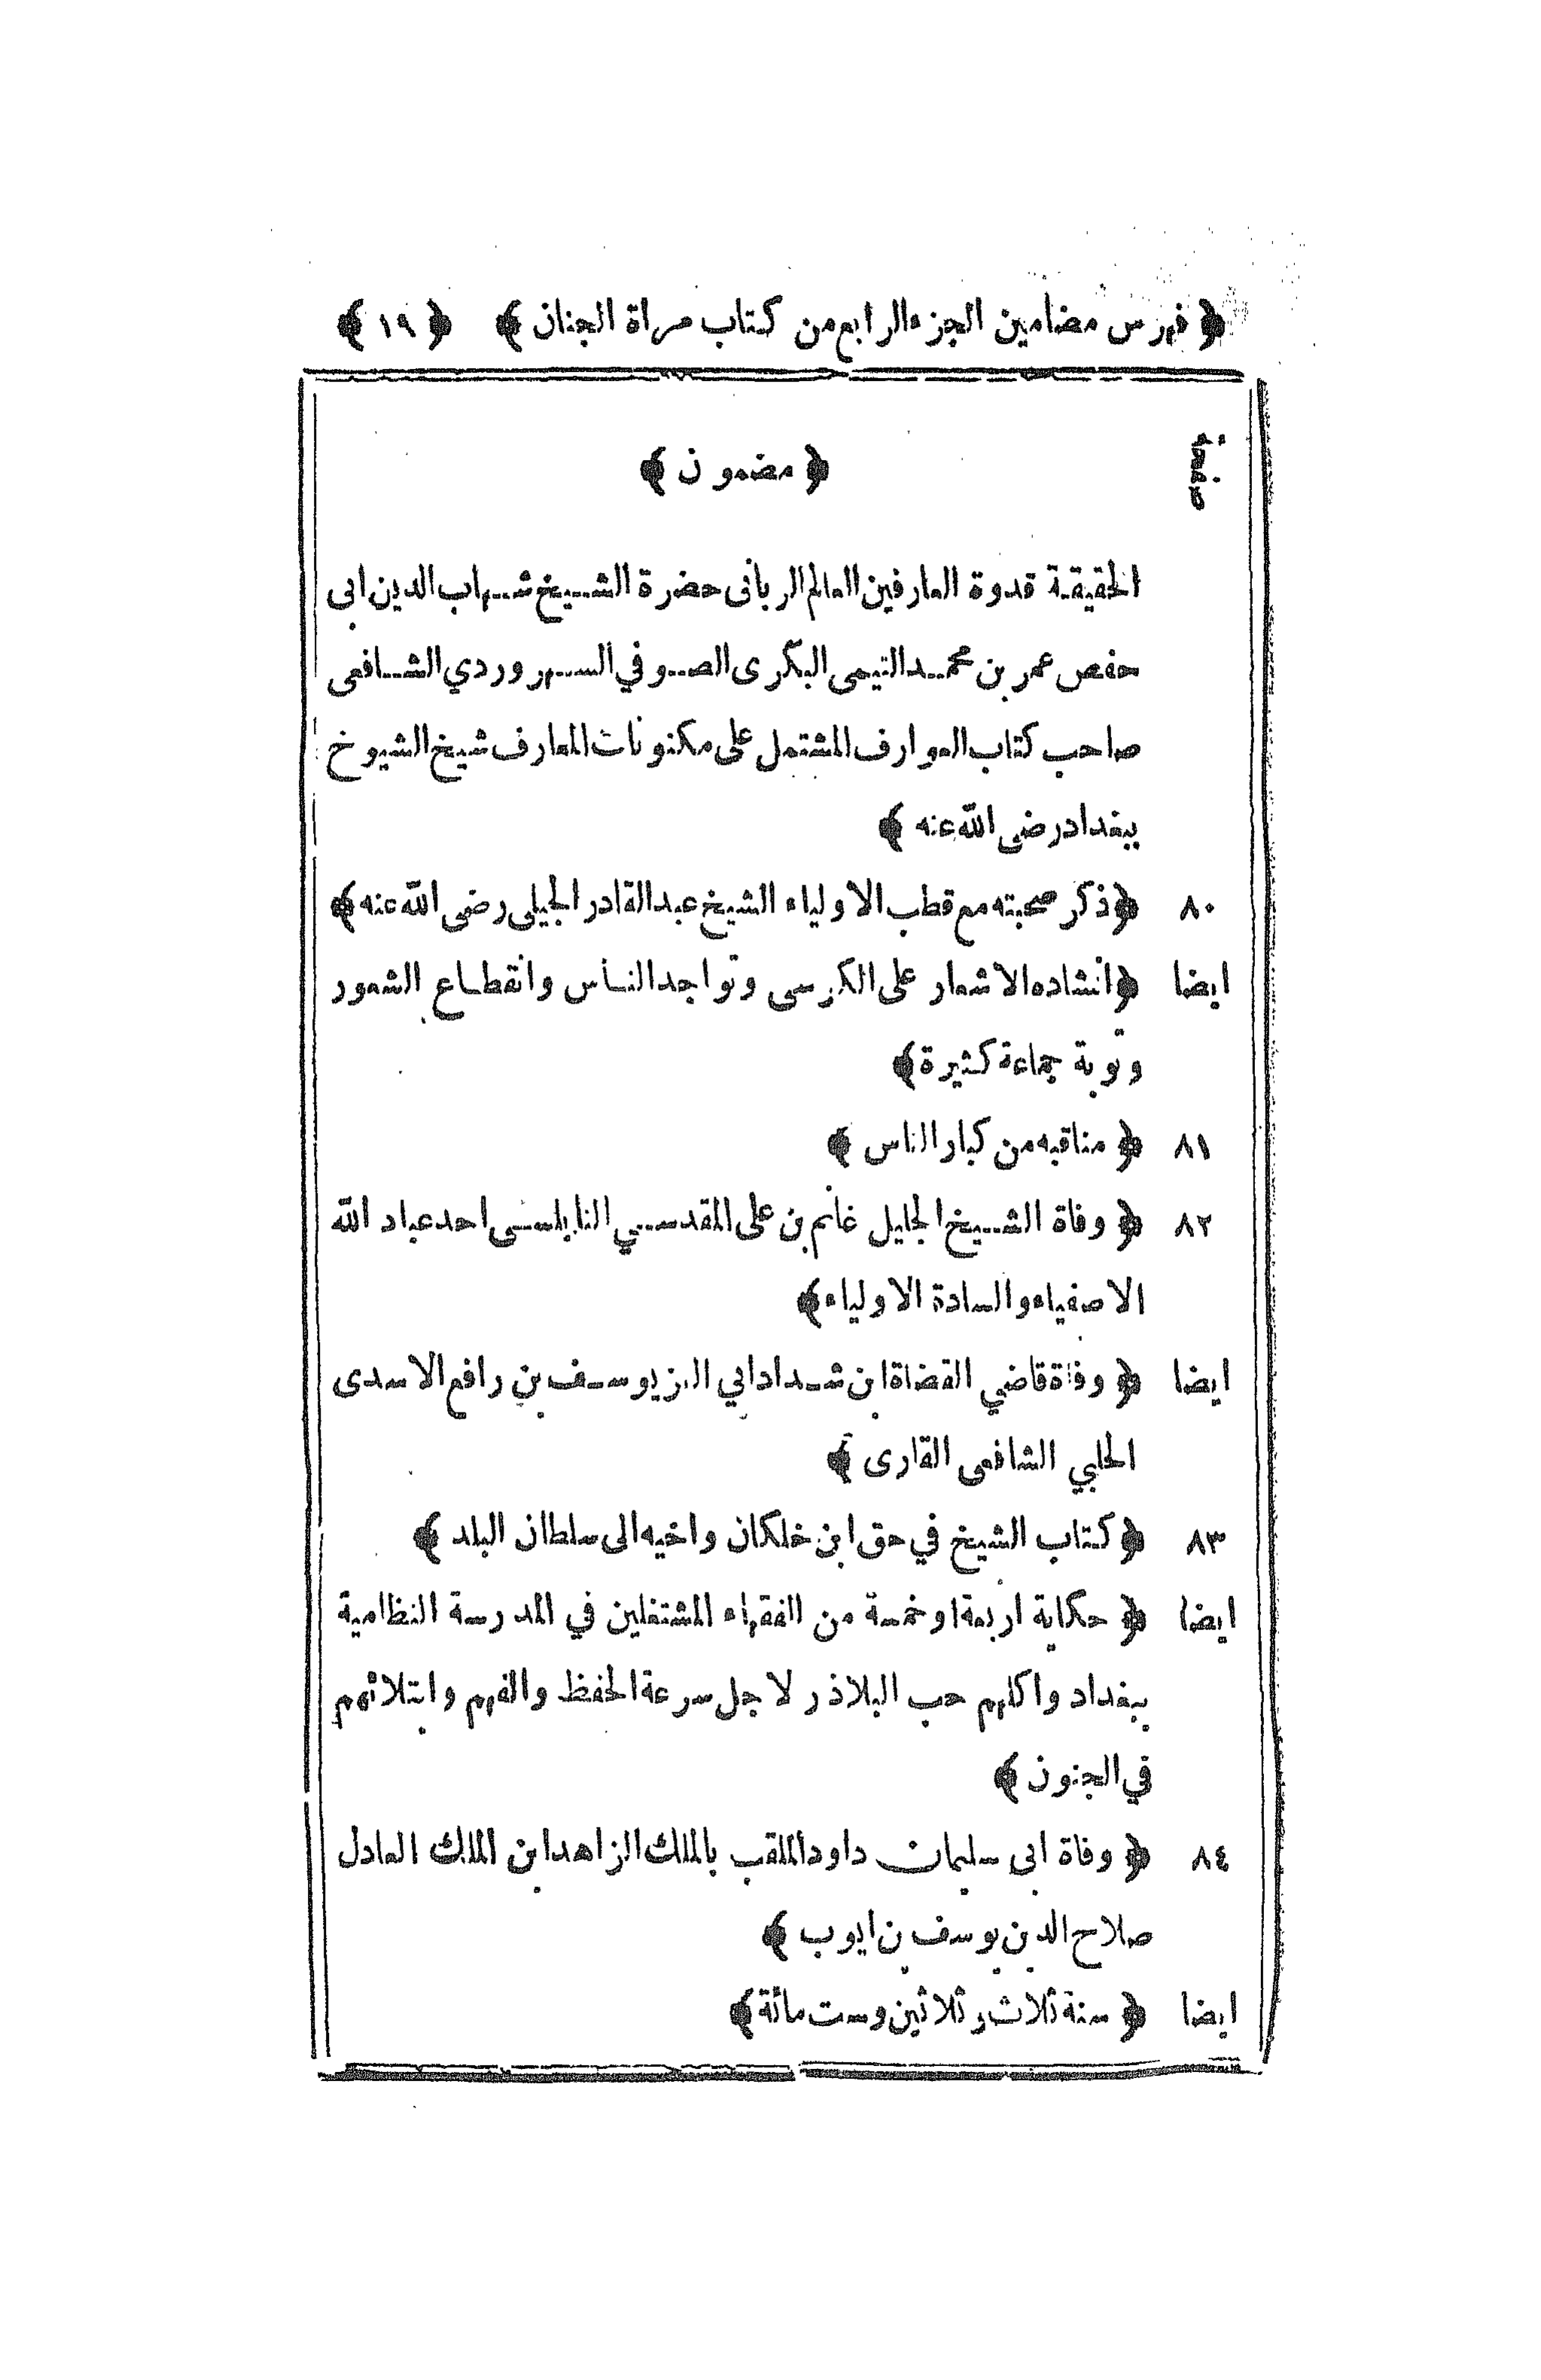 ﴿ فهرس مضامين الجزء الرابع من كتاب مراة الجنان ﴾ ﴿ ١٩ ﴾
صفحة ﴿ مضمون ﴾
الحقيقة قدوة العارفين العالم الربانى حضرة الشيخ شهاب الدين ابى
حفص عمر بن محمد التيمى البكرى الصوفي السهروردي الشافعى
صاحب كتاب العوارف المشتمل على مكنونات المعارف شيخ الشيوخ
ببغداد رضى الله عنه ﴾
٨٠ ﴿ ذكر صحبته مع قطب الاولياء الشيخ عبد القادر الجيلى رضى الله عنه ﴾
ايضا ﴿ انشاده الاشعار على الكرسى وتواجد الناس وانقطاع الشعور
وتوبة جماعة كثيرة ﴾
٨١ ﴿ مناقبه من كبار الناس ﴾
٨٢ ﴿ وفاة الشيخ الجليل غانم بن على المقدسي النابلسى احد عباد الله
الاصفياء والسادة الاولياء ﴾
ايضا ﴿ وفاة قاضي القضاة ابن شداد ابي العز يوسف بن رافع الاسدى
الحلبي الشافعى القارى ﴾
٨٣ ﴿ كتاب الشيخ في حق ابن خلكان واخيه الى سلطان البلد ﴾
ايضا ﴿ حكاية اربعة او خمسة من الفقهاء المشتغلين في المدرسة النظامية
ببغداد واكلهم حب البلاذر لاجل سرعة الحفظ والفهم وابتلائهم
في الجنون ﴾
٨٤ ﴿ وفاة ابى سليمان داود الملقب بالملك الزاهد ابن الملك العادل
صلاح الدين يوسف بن ايوب ﴾
ايضا ﴿ سنة ثلاث وثلاثين وست مائة ﴾